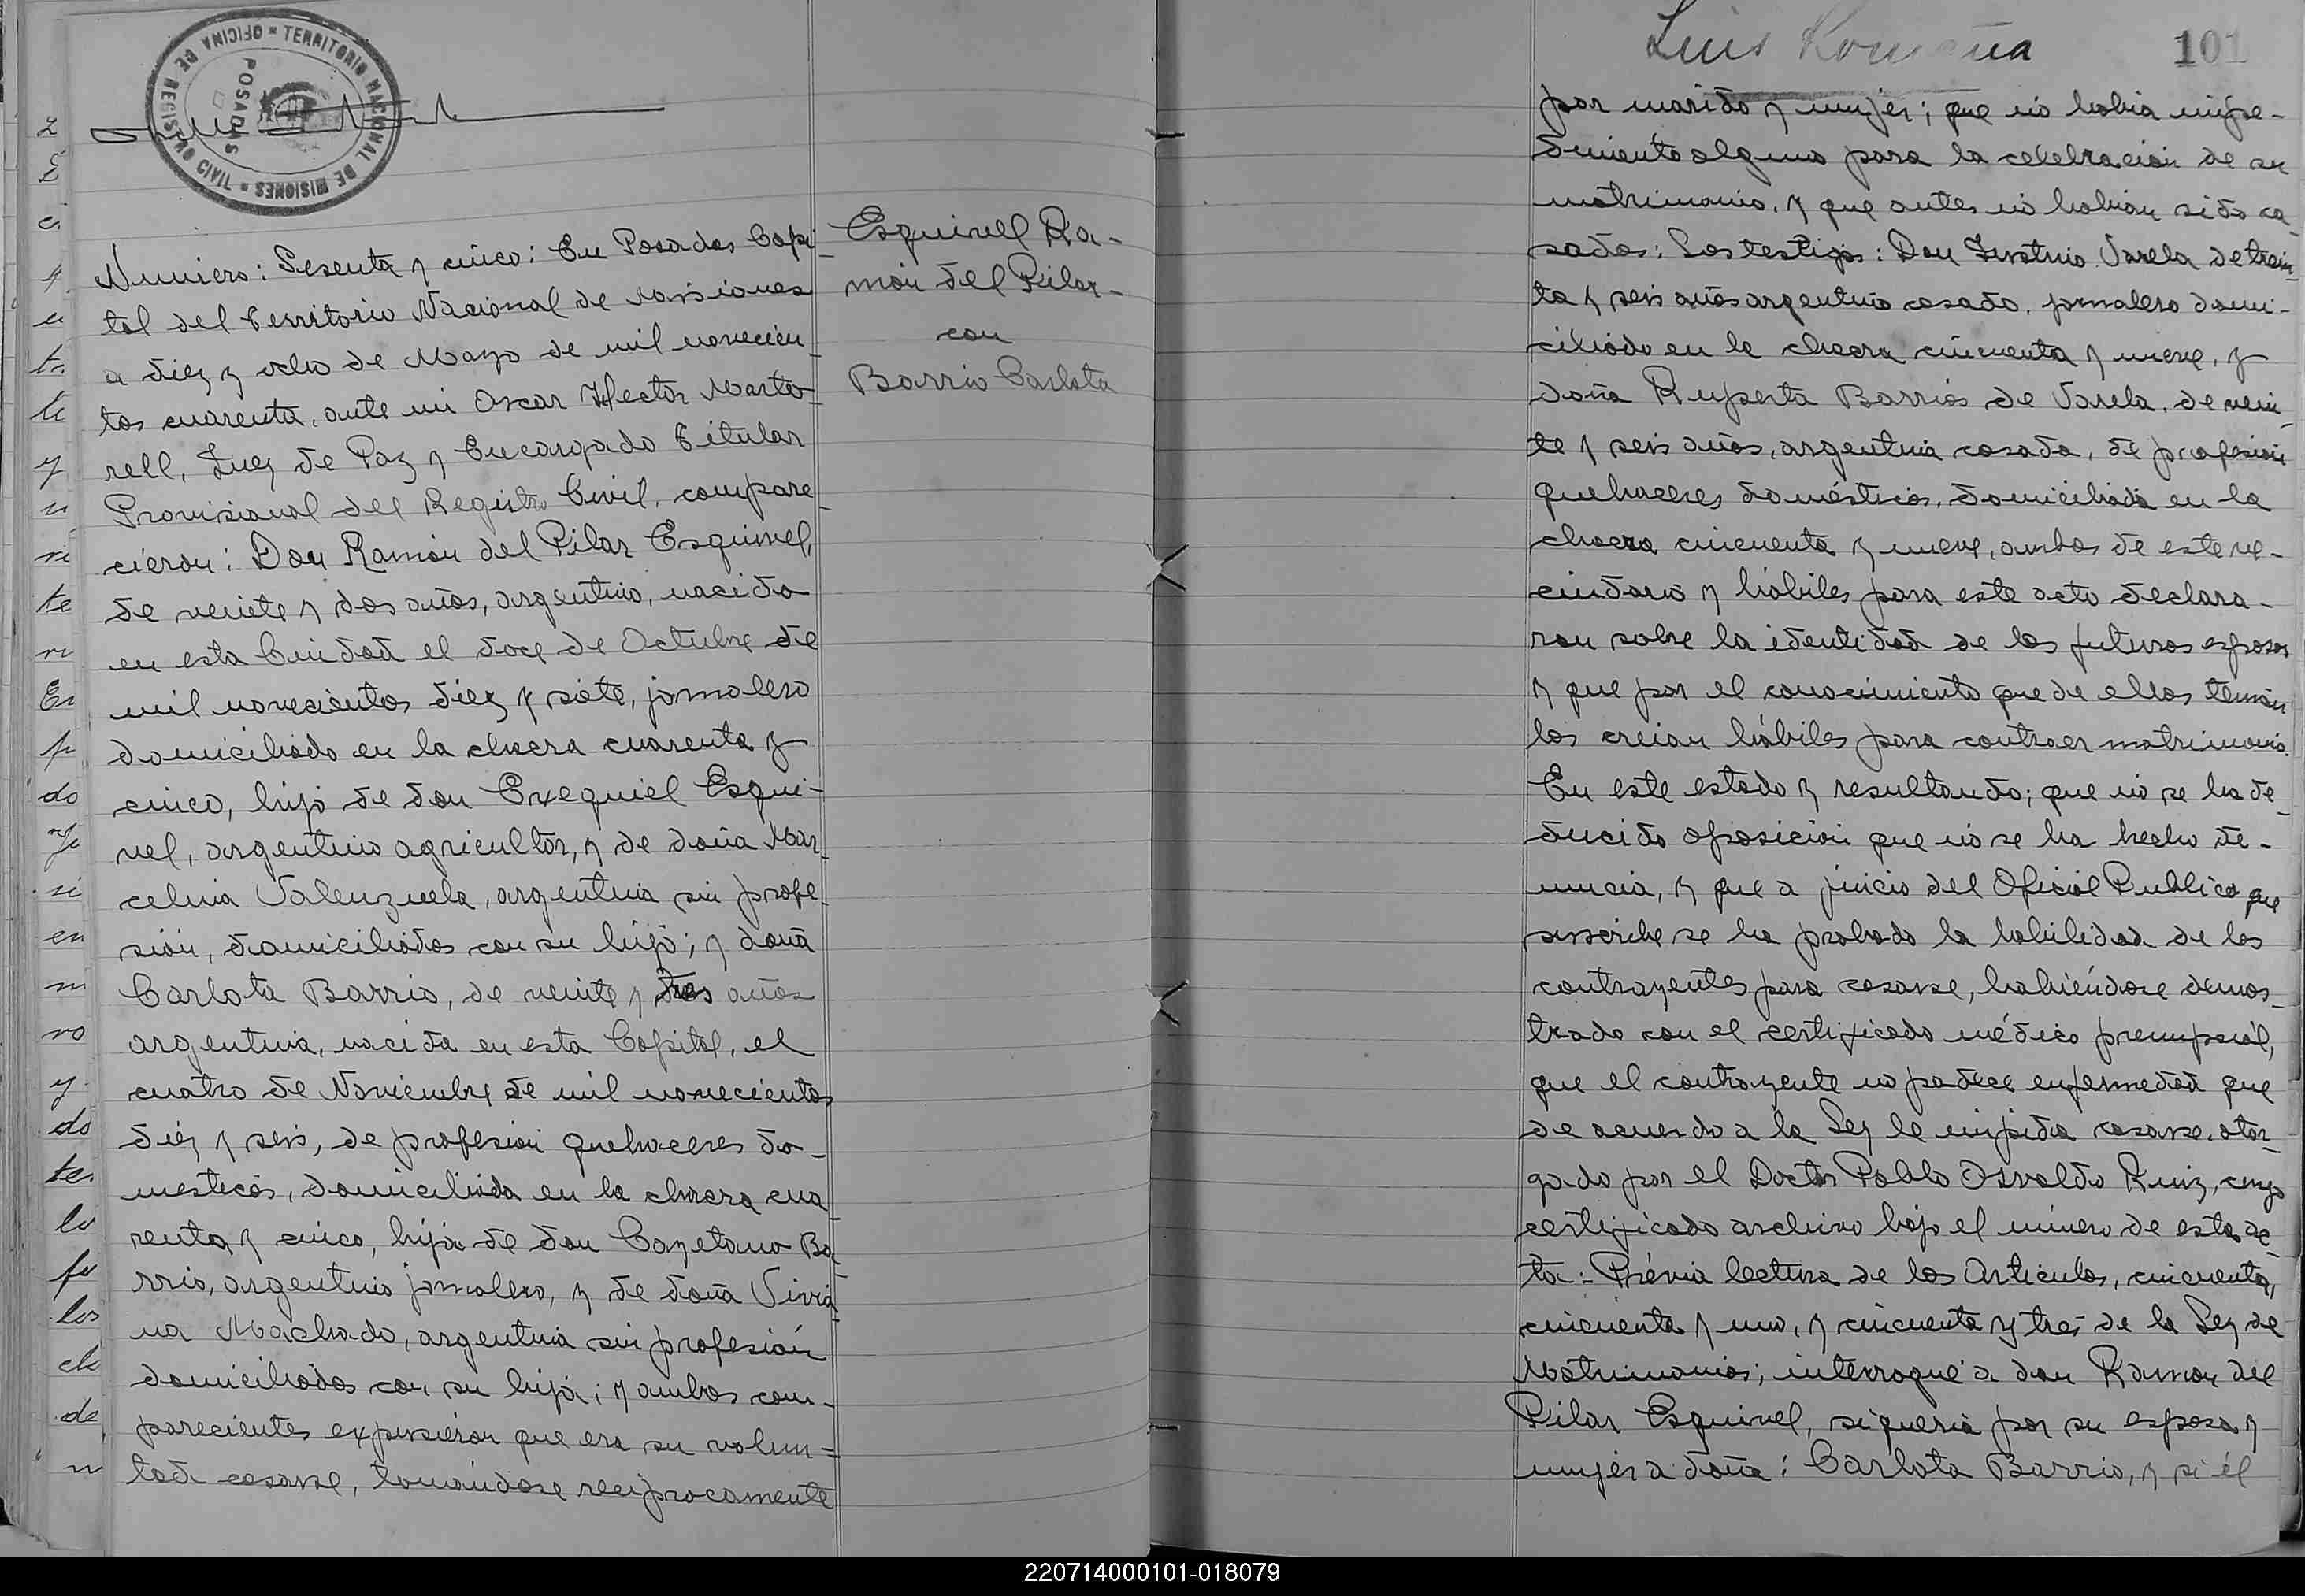 OFICINA DE REGISTRO CIVIL = TERRITORIO NACIONAL DE MISIONES =
POSADAS
Numero: Sesenta y cinco: En Posadas Capi-
tal del Territorio Nacional de Misiones
a diez y ocho de Mayo de mil novecien-
tos cuarenta, ante mi Oscar Hector Marto-
rell, Juez de Paz y Encargado Titular
Provisional del Registro Civil, compare-
cieron: Don Ramón del Pilar Esquivel,
de veinte y dos años, argentino, nacido
en esta Ciudad el doce de Octubre de
mil novecientos diez y siete, jornalero
domiciliado en la chacra cuarenta y
cinco, hijo de don Exequiel Esqui-
vel, argentino agricultor, y de doña Mar-
celina Valenzuela, argentina sin profe-
sión, domiciliados con su hijo; y doña
Carlota Barrio, de veinte y tres años
argentina, nacida en esta Capital, el
cuatro de Noviembre de mil novecientos
diez y seis, de profesion quehaceres do-
mesticos, domiciliada en la chacra cua-
renta y cinco, hija de don Cayetano Ba-
rrio, argentino jornalero, y de doña Viria-
na Machado, argentina sin profesión
domiciliados con su hija; y ambos com-
parecientes expusieron que era su volun-
tad casarse, tomandose reciprocamente
Esquivel Ra-
món del Pilar-
con
Barrio Carlota
Luis Romaña
101
por marido y mujer; que no habia impe-
dimento alguno para la celebracion de su
matrimonio, y que antes no habian sido ca-
sados: Los testigos: Don Varela de trein-
ta y seis años argentino casado, jornalero domi-
ciliado en la chacra cincuenta y nueve, y
doña Ruperta Barrios de Varela, de vein-
te y seis años, argentina casada, de profesion
quehaceres domésticos, domiciliada en la
chacra cincuenta y nueve, ambos de este ve-
cindario y hábiles para este acto declara-
ron sobre la identidad de los futuros esposos
y que por el conocimiento que de ellos tenian
los creian hábiles para contraer matrimonio.
En este estado y resultando; que no se ha de-
ducido oposicion que no se ha hecho de-
nuncia, y que a juicio del Oficial Publico que
suscribe se ha probado la habilidad de los
contrayentes para casarse, habiéndose demos-
trado con el certificado médico prenupcial,
que el contrayente no padece enfermedad que
de acuerdo a la Ley le impida casarse, otor-
gado por el Doctor Pablo Osvaldo Ruiz, cuyo
certificado archivo bajo el número de esta ac-
ta: Prévia lectura de los Articulos, cincuenta,
cincuenta y uno, y cincuenta y tres de la Ley de
Matrimonios; interrogué a don Ramon del
Pilar Esquivel, si queria por su esposa y
mujer a doña: Carlota Barrio, y si él
220714000101-018079